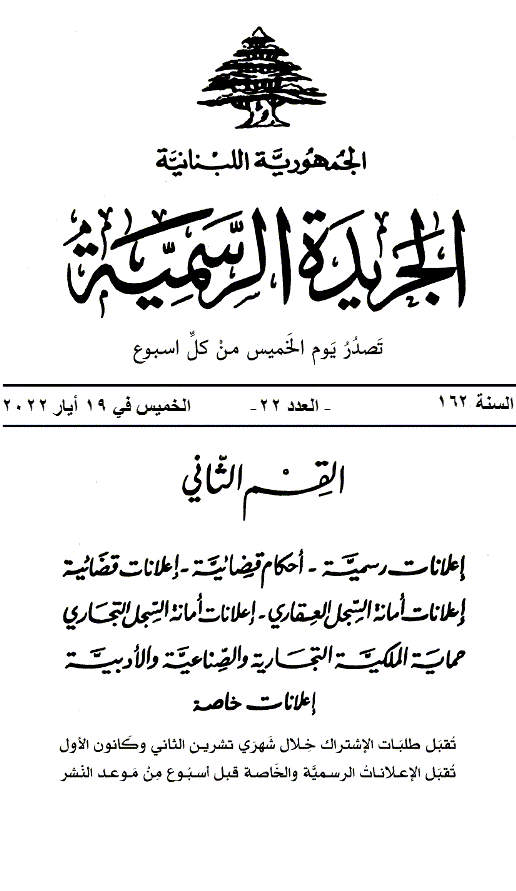 الجمهوريَّة اللبنانيَّة
الجريدة الرسميَّة
تَصدُرُ يَوم الخَميس منْ كلِّ اسبوع
السنة ١٦٢ - العدد ٢٢- الخميس في ١٩ أيار ٢٠٢٢
القِسْم الثّاني
إعلانات رسميَّة - أحكام قضائيَّة - إعلانات قضائية
إعلانات أمانة السِّجل العِقاري - إعلانات أمانة السِّجل التجاري
حماية الملكيَّة التجارية والصِّناعيَّة والأدبيَّة
إعلانات خاصة
تُقبَل طلبَات الإشتراك خِلال شَهرَي تشرين الثاني وكَانون الأول
تُقبَل الإعلاناتُ الرسميَّة والخَاصة قبل أسبُوع مِنْ مَوعد النَشر